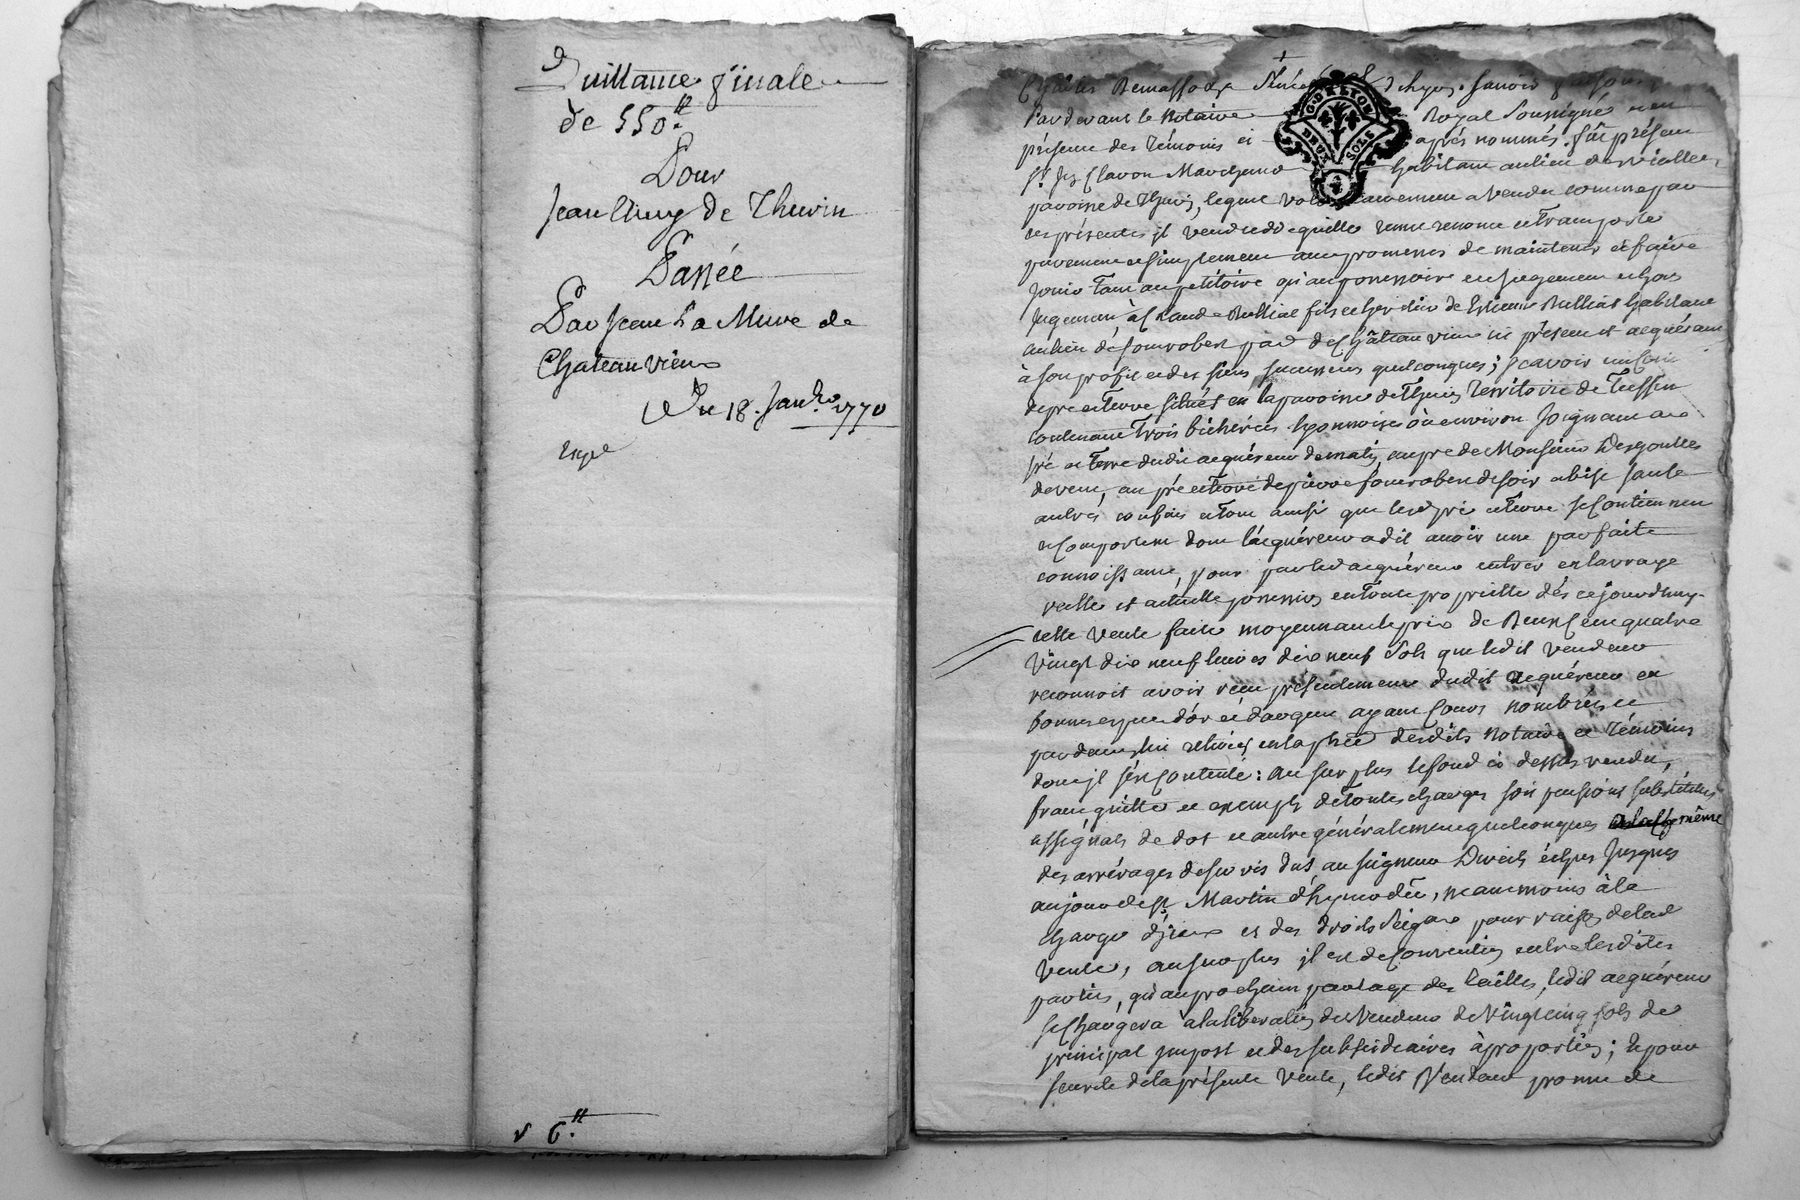 Quittance finale
de 550.#
Pour
Jean de Thurin
Passée
Par Jean La Mure de
Chateauvieux
Du 18. Janv. 1770
Exp.
6.#
G. D. LYON
DEUX SOLS
Pardevant le Notaire Royal Soussigné et en
présence des Témoins ci après nommés. fut présent
Sr. Clavon Marchand habitant au lieu des
paroisse de Thurin, lequel volontairement a vendu comme par
ces présentes il vend cedde quitte remet renonce et transporte
purement et simplement avec promesses de maintenir et faire
jouir tant au petitoire qu'au possessoire en jugement et hors
jugement à Claude Rulliat fils et heritier de Estienne Rulliat habitant
au lieu de fourobert par. de Château vieux ici présent et acquérant
à son profit et des siens successeurs quelconques; scavoir un
de pre et terre situés en la paroisse de Thurin Territoire de
contenant trois bicherées lyonnoises ou environ joignant au
pré et terre dudit acquéreur de matin, au pre de Monsieur Desgouttes
de vent, au pré et terre de pierre fourobert de soir et bise sauf
autres confins et tout ainsi que lesd. pré et terre se contiennent
et comportent dont l'acquéreur a dit avoir une parfaite
connoissance, pour par led. acquéreur entrer en la vraye
réelle et actuelle possession et toute proprietté dés cejourdhuy.
cette vente faite moyennant le prix de Neuf Cent quatre
Vingt dix neuf livres dix neuf Sols que ledit vendeur
reconnoit avoir receu présentement dudit acquéreur en
bonnes especes d'or et d'argent ayant Cours nombrées et
par devers lui retirées en la présence desdits Notaire et Témoins
dont il s'est contenté: au surplus le fond ci dessus vendu,
franc quitte et exempt de toutes charges soit pensions substitutions
assignats de dot et autre généralement quelconques même
des arrérages de servis dus au seigneur Direct échus jusques
au jour de St. Martin d'hyver dernier, neanmoins à la
charge d'iceux et des droits Seigneuriaux pour raison de lad.
Vente, au surplus il est de Convention entre lesdites
parties, qu'au prochain partage des tailles, ledit acquéreur
se chargera à la liberation du Vendeur de Vingt cinq sols de
principal impost et des subsidiaires à proportion; et pour
seureté de la présente Vente, ledit Vendeur promet de